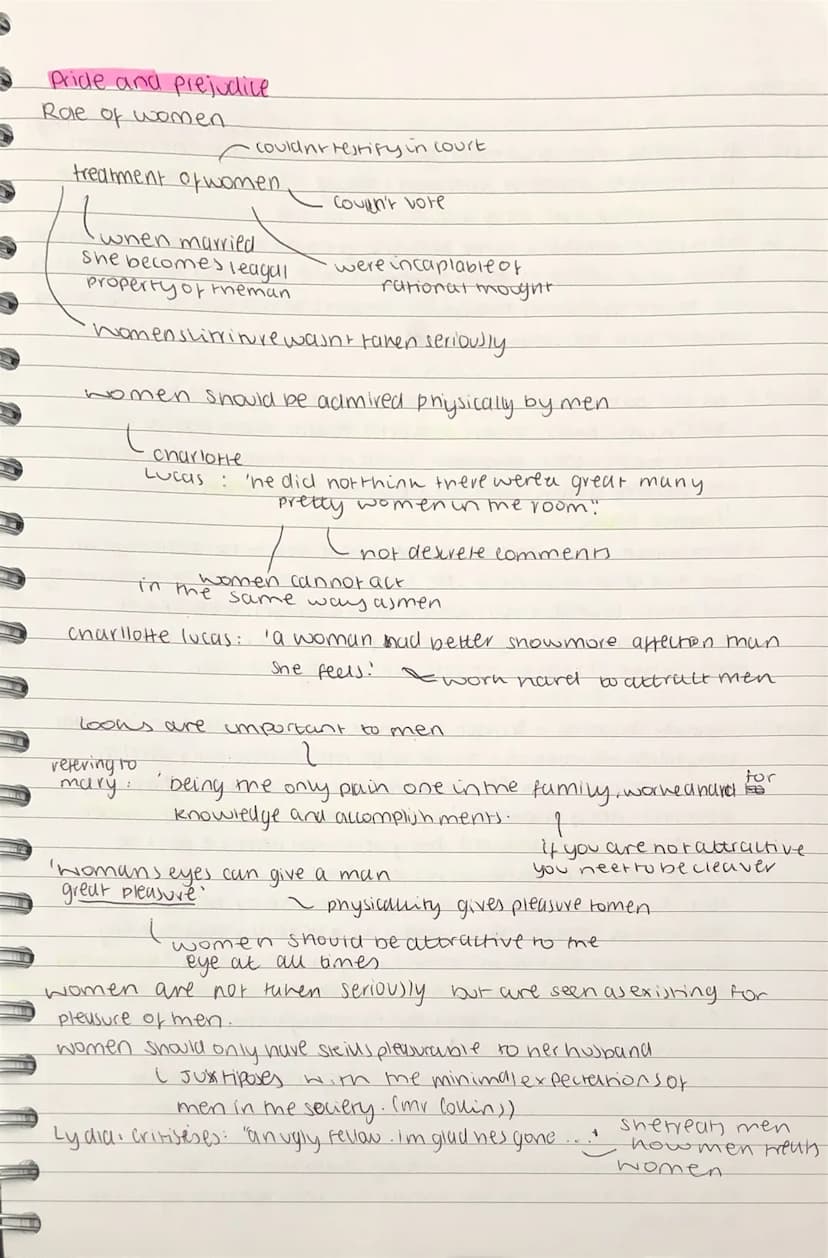 Pride and prejudice
Role of women
couldn't testify in court
treatment of women
couldn't vote
when married
she becomes leagal
property of the man
were incaplable of
rational thought
womens litriture wasnt taken seriously
women should be admired physically by men
charlotte
Lucas : 'he did not think there were a great many
pretty women in the room".
not descrete comments
women cannot act
in the same way as men
charllotte lucas: 'a woman had better show more affection than
she feels.'
work hard to attract men
looks are important to men
refering to
mary: 'being the only plain one in the family, worked hard for
knowledge and accomplishments.
if you are not attractive
you need to be cleaver
'womans eyes can give a man
great pleasure'
physicallity gives pleasure to men
women should be attractive to the
eye at all times
women are not taken seriously but are seen as existing for
pleasure of men.
women should only have skills pleasurable to her husband
Juxtiposes with the minimal expectations of
men in the society. (mr Collins)
Lydia: critisises: "an ugly fellow. im glad hes gone ...'
she treats men
how men treats
women